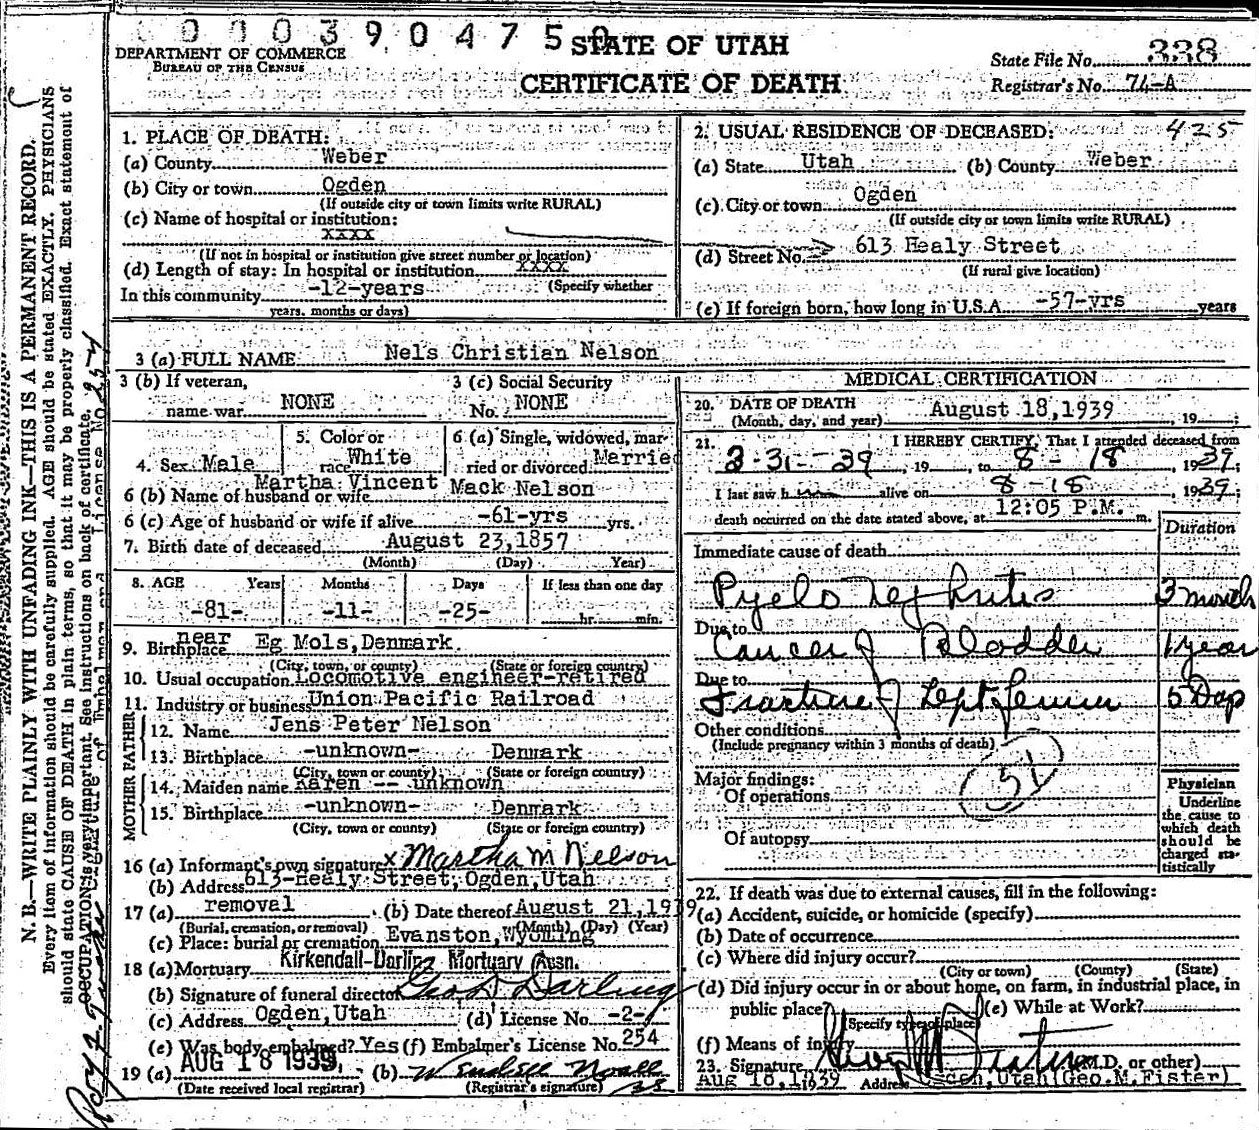 0 0 0 3 9 0 4 7 5 0
DEPARTMENT OF COMMERCE
BUREAU OF THE CENSUS
STATE OF UTAH
CERTIFICATE OF DEATH
State File No. 338
Registrar's No. 74-A
N. B.—WRITE PLAINLY WITH UNFADING INK—THIS IS A PERMANENT RECORD.
Every item of information should be carefully supplied. AGE should be stated EXACTLY. PHYSICIANS
should state CAUSE OF DEATH in plain terms, so that it may be properly classified. Exact statement of
OCCUPATION is very important. See instructions on back of certificate.
1. PLACE OF DEATH:
(a) County Weber
(b) City or town Ogden
(If outside city or town limits write RURAL)
(c) Name of hospital or institution:
xxxx
(If not in hospital or institution give street number or location)
(d) Length of stay: In hospital or institution xxxx
(Specify whether
In this community -12-years
years, months or days)
2. USUAL RESIDENCE OF DECEASED: 425
(a) State Utah (b) County Weber
(c) City or town Ogden
(If outside city or town limits write RURAL)
(d) Street No. 613 Healy Street
(If rural give location)
(e) If foreign born, how long in U.S.A. -57-yrs years
3 (a) FULL NAME Nels Christian Nelson
3 (b) If veteran, name war NONE
3 (c) Social Security No. NONE
4. Sex Male
5. Color or race White
6 (a) Single, widowed, married or divorced Married
6 (b) Name of husband or wife Martha Vincent Mack Nelson
6 (c) Age of husband or wife if alive -61-yrs yrs.
7. Birth date of deceased August 23,1857
(Month) (Day) Year)
8. AGE Years Months Days If less than one day
-81- -11- -25- hr. min.
9. Birthplace near Eg Mols, Denmark
(City, town, or county) (State or foreign country)
10. Usual occupation Locomotive engineer-retired
11. Industry or business Union Pacific Railroad
FATHER
12. Name Jens Peter Nelson
13. Birthplace -unknown- Denmark
(City, town or county) (State or foreign country)
MOTHER
14. Maiden name Karen -- unknown
15. Birthplace -unknown- Denmark
(City, town or county) (State or foreign country)
16 (a) Informant's own signature x Martha M Nelson
(b) Address 613-Healy Street, Ogden, Utah
17 (a) removal (b) Date thereof August 21,1939
(Burial, cremation, or removal) (Month) (Day) (Year)
(c) Place: burial or cremation Evanston, Wyoming
18 (a) Mortuary Kirkendall-Darling Mortuary Assn.
(b) Signature of funeral director Geo D Darling
(c) Address Ogden, Utah (d) License No. -2-
(e) Was body embalmed? Yes (f) Embalmer's License No. 254
19 (a) AUG 18 1939 (b)
(Date received local registrar) (Registrar's signature)
MEDICAL CERTIFICATION
20. DATE OF DEATH August 18,1939, 19
(Month, day, and year)
21. I HEREBY CERTIFY, That I attended deceased from
3-31-39, 19, to 8-18, 1939.
I last saw h alive on 8-18, 1939
death occurred on the date stated above, at 12:05 P.M. m.
Duration
Immediate cause of death
Pyelo Nephritis 3 month
Due to Cancer of Bladder 1 year
Due to Fracture of Left femur 5 Days
Other conditions
(Include pregnancy within 3 months of death)
51
Major findings:
Of operations
Of autopsy
Physician
Underline
the cause to
which death
should be
charged sta-
tistically
22. If death was due to external causes, fill in the following:
(a) Accident, suicide, or homicide (specify)
(b) Date of occurrence
(c) Where did injury occur?
(City or town) (County) (State)
(d) Did injury occur in or about home, on farm, in industrial place, in
public place? (e) While at Work?
(Specify type of place)
(f) Means of injury
23. Signature (M.D. or other)
Aug 18,1939 Address Ogden, Utah (Geo.M.Fister)